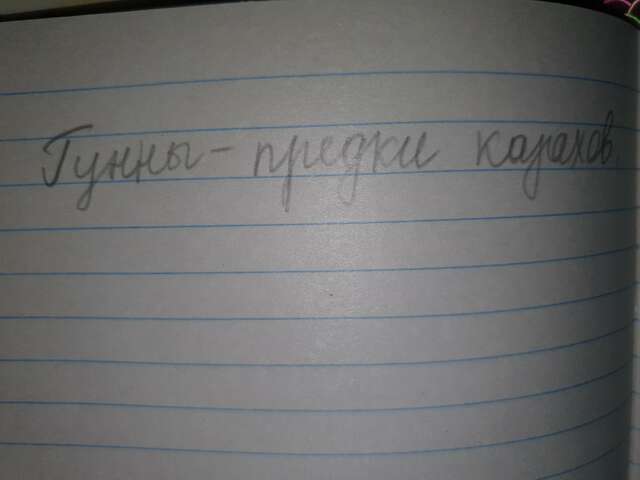 Гунны - предки казахов.